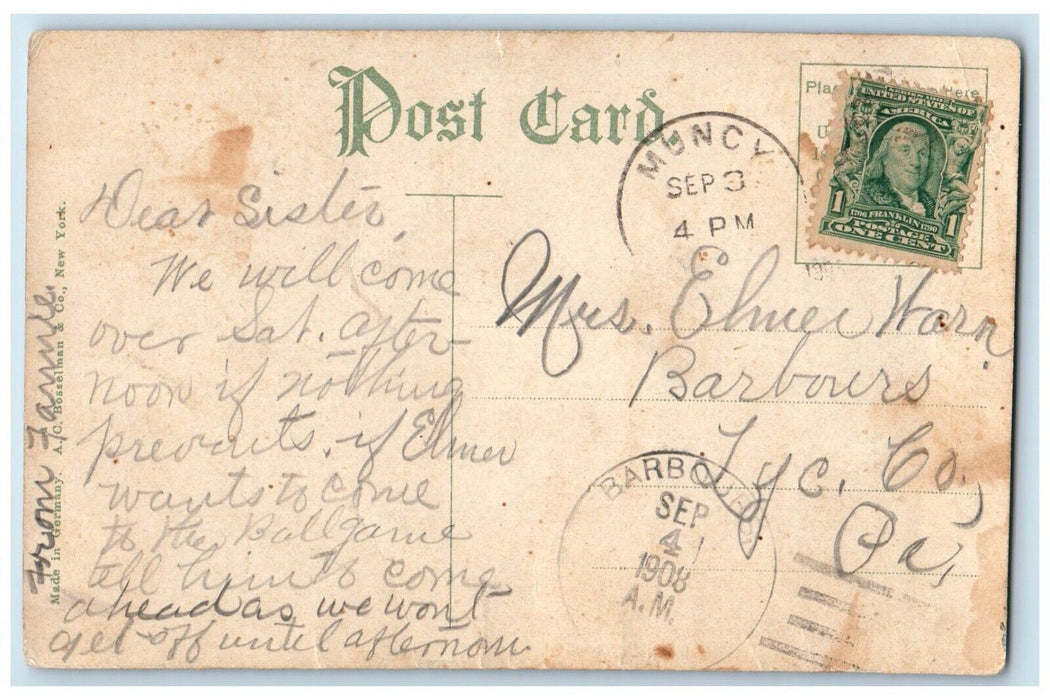 Post Card
Place Here
UNITED STATES OF
AMERICA
1 1
1706 FRANKLIN 1790
POSTAGE
ONE CENT
MUNCY
SEP 3
4 PM
Dear Sister,
We will come
over Sat. after-
noon if nothing
prevents. if Elmer
wants to come
to the Ballgame
tell him to come
ahead as we wont
get off until afternoon.
From Fannie.
Made in Germany. A. C. Bosselman & Co., New York.
Mrs. Elmer Warn
Barbours
Lyc. Co.,
Pa.
BARBOURS
SEP
4
1908
A.M.